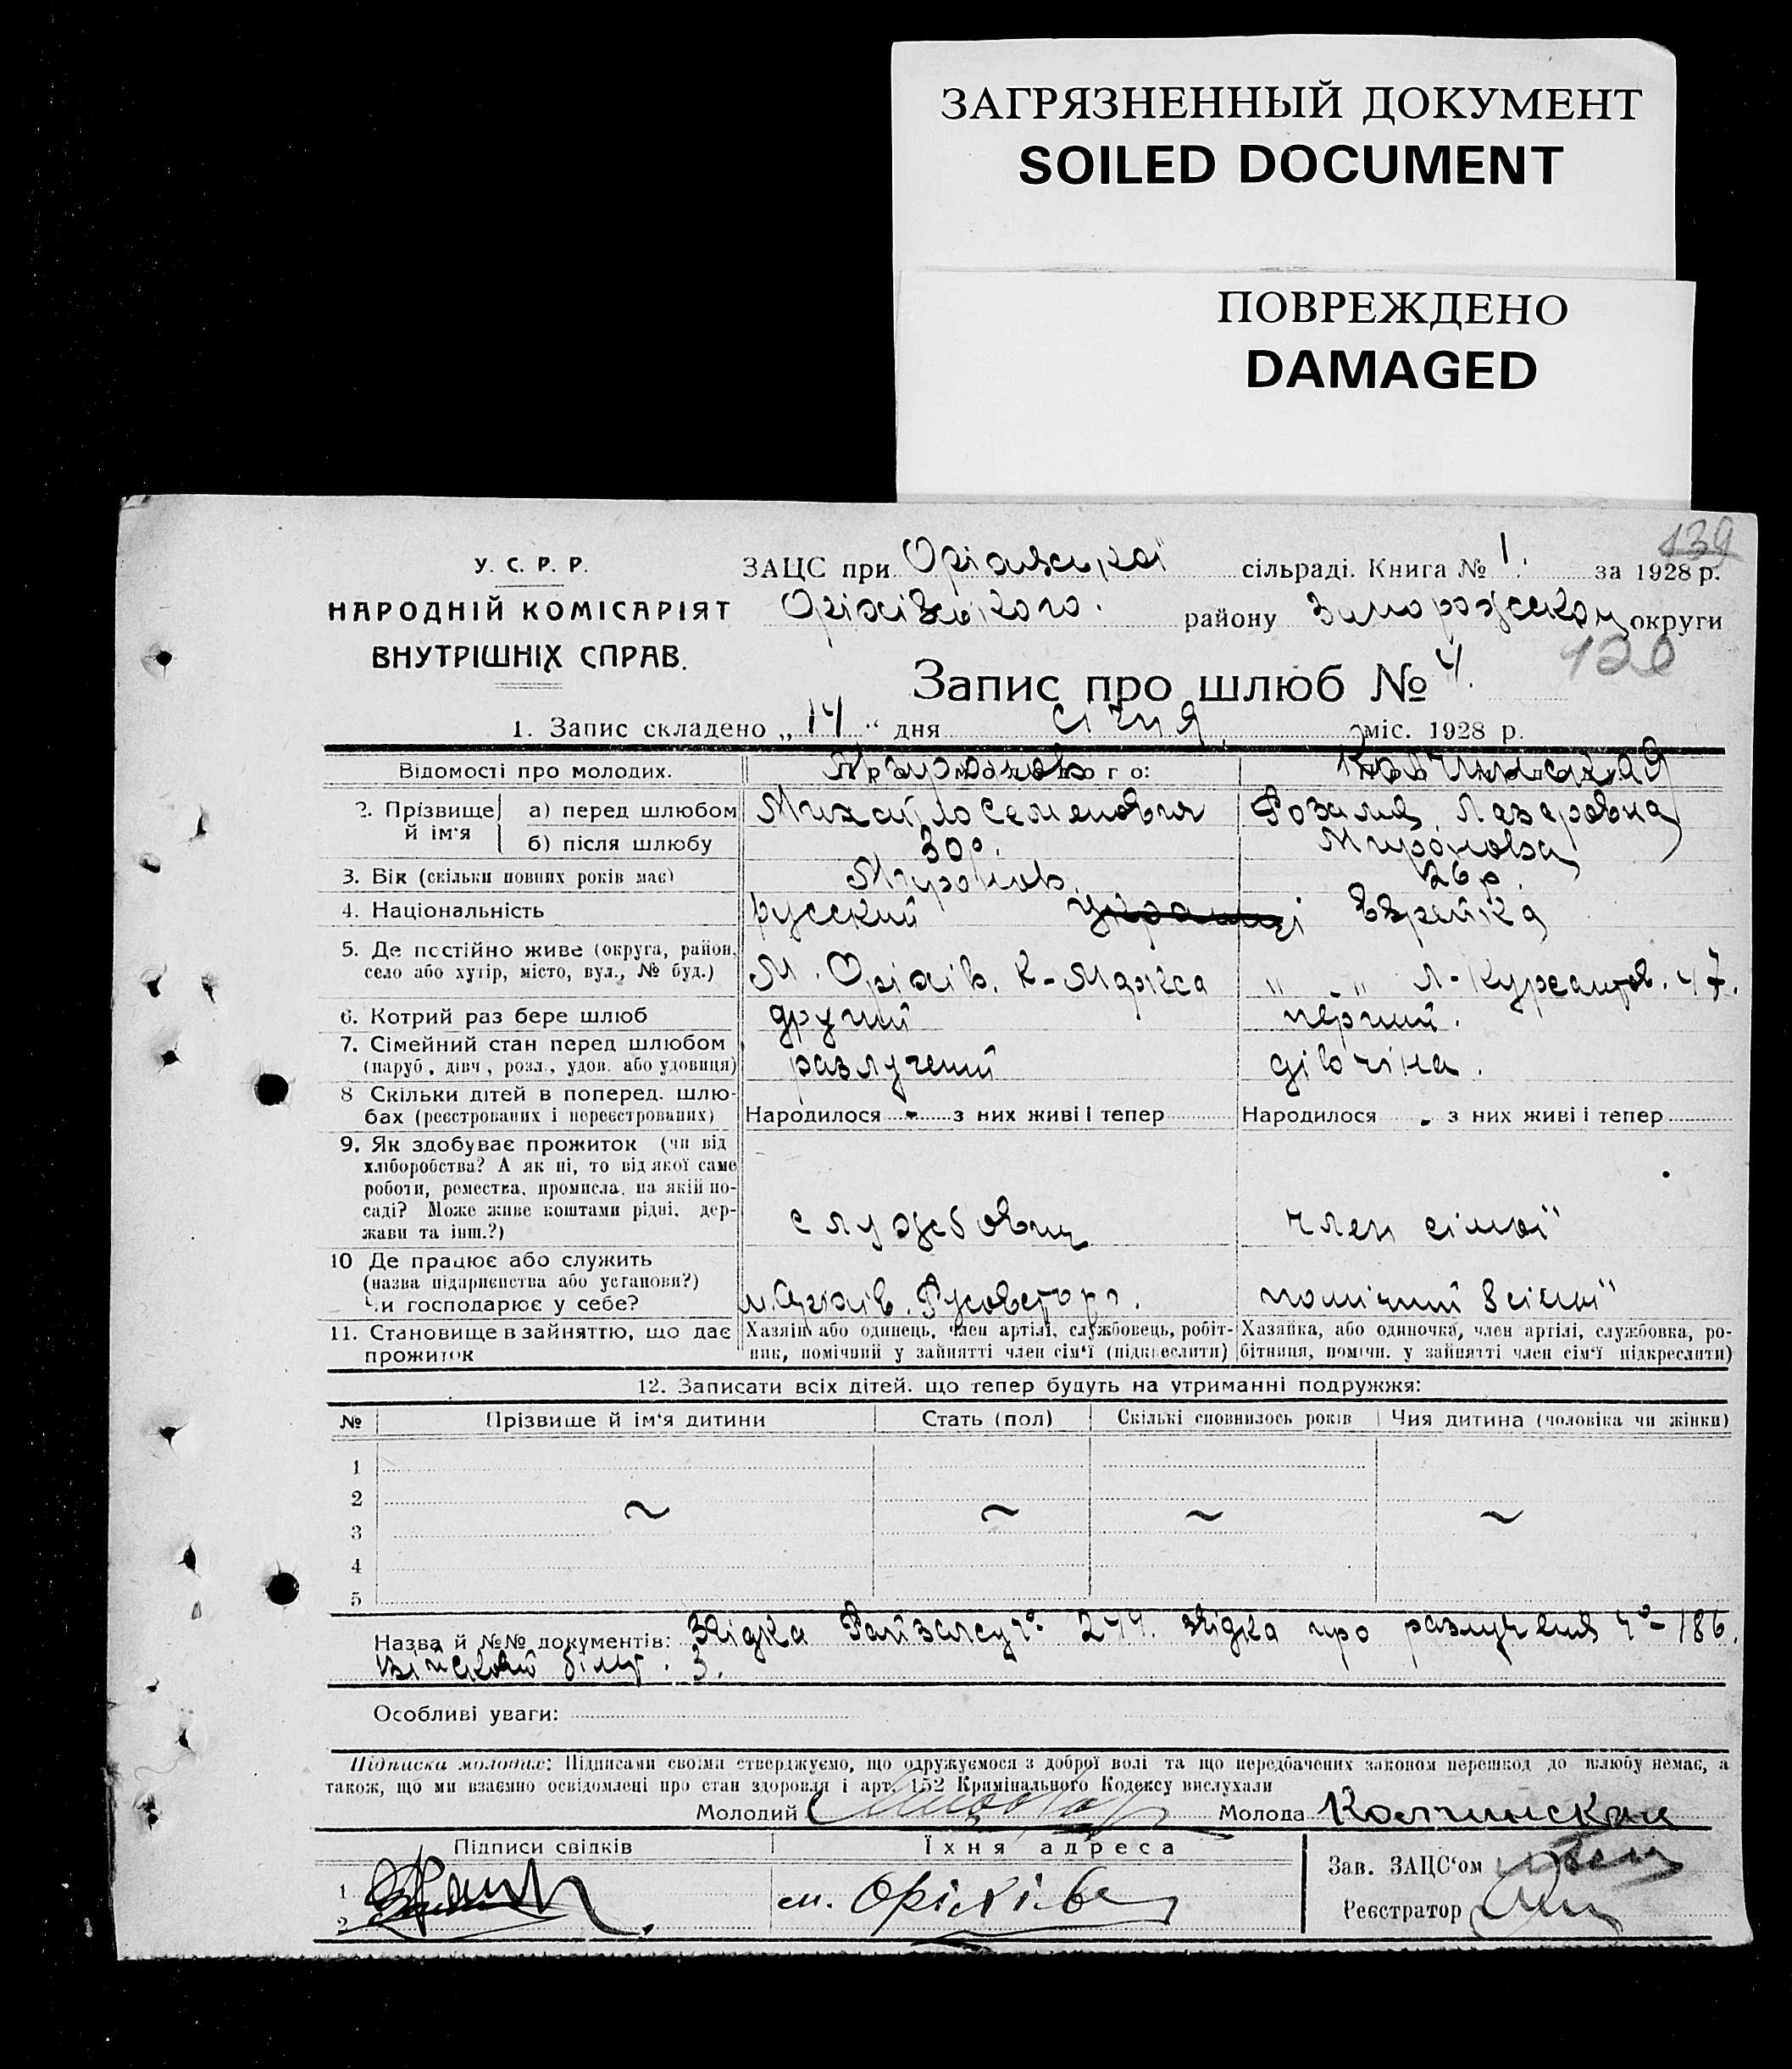 ЗАГРЯЗНЕННЫЙ ДОКУМЕНТ
SOILED DOCUMENT
ПОВРЕЖДЕНО
DAMAGED
139
У. С. Р. Р.
НАРОДНІЙ КОМІСАРІЯТ
ВНУТРІШНІХ СПРАВ.
ЗАЦС при сільраді. Книга № 1. за 1928 р.
Оріхівського. району округи
120
Запис про шлюб № 4.
1. Запис складено „ 14 “ дня січня міс. 1928 р.
Відомості про молодих.
2. Прізвище й ім'я
а) перед шлюбом Михайло Семенович Розалия Лазаровна
б) після шлюбу 30 р. Миронова
3. Вік (скільки повних років має) Миронов 26 р.
4. Національність русский Еврейка
5. Де постійно живе (округа, район, село або хутір, місто, вул., № буд.) М. Оріхів. К-Маркса " " Л-Курсантов. 47.
6. Котрий раз бере шлюб другий перший.
7. Сімейний стан перед шлюбом (паруб., дівч., розл., удов. або удовиця) разлучений дівчіна.
8 Скільки дітей в поперед. шлюбах (реєстрованих і нереєстрованих) Народилося з них живі і тепер Народилося з них живі і тепер
9. Як здобуває прожиток (чи від
хліборобства? А як ні, то від якої саме
роботи, ремества, промисла, на якій по-
саді? Може живе коштами рідні, дер-
жави та інш.?) службовец член сімої
10 Де працює або служить
(назва підприєнства або установи?)
Чи господарює у себе? помічний в сімої
11. Становище в зайняттю, що дає прожиток
Хазяїн або одинець, член артілі, службовець, робіт-
ник, помічний у зайнятті член сім'ї (підкреслити)
Хазяйка, або одиночка, член артілі, службовка, ро-
бітниця, помічн. у зайнятті член сім'ї підкреслити)
12. Записати всіх дітей. що тепер будуть на утриманні подружжя:
№ Прізвише й ім'я дитини Стать (пол) Скількі сповнилось років Чия дитина (чоловіка чи жінки)
1
2
3
4
5
Назва й №№ документів: 244. про разлучення 186.
Війсковий білет. 3.
Особливі уваги:
Підписка молодих: Підписами своїми стверджуємо, що одружуємося з доброї волі та що передбачених законом перешкод до шлюбу немає, а
також, що ми взаємно освідомлені про стан здоровля і арт. 152 Кримінального Кодексу вислухали
Молодий Молода Колчинская
Підписи свідків Їхня адреса
Зав. ЗАЦС'ом
1 м. Оріхів
2
Реєстратор